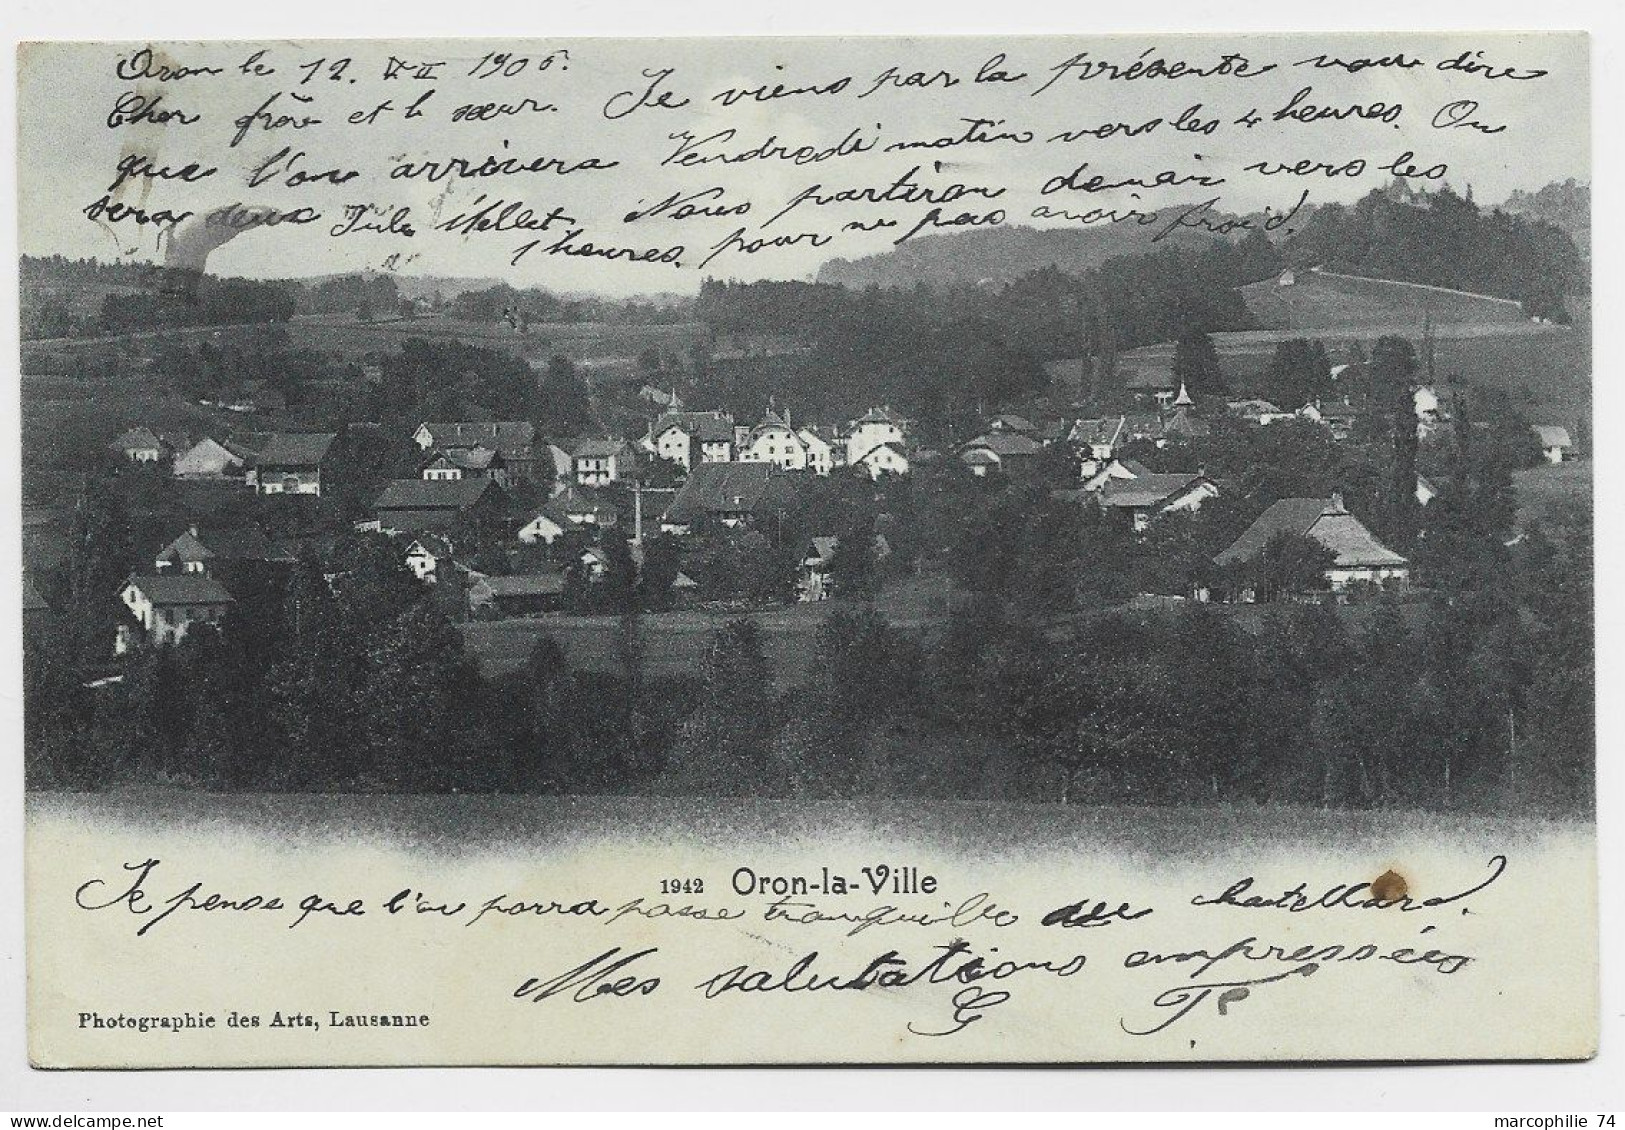 Oron le 12. 1906.
Cher frère et b sœur. Je viens par la présente vous dire
que l'on arrivera Vendredi matin vers les 4 heures. On
sera deux Jule Mellet. Nous partiron demain vers les
1 heures. pour ne pas avoir froid.
1942 Oron-la-Ville
Je pense que l'on porra passe tranquille au chatellard.
Mes salutations empressées
G T.
Photographie des Arts, Lausanne
marcophilie 74